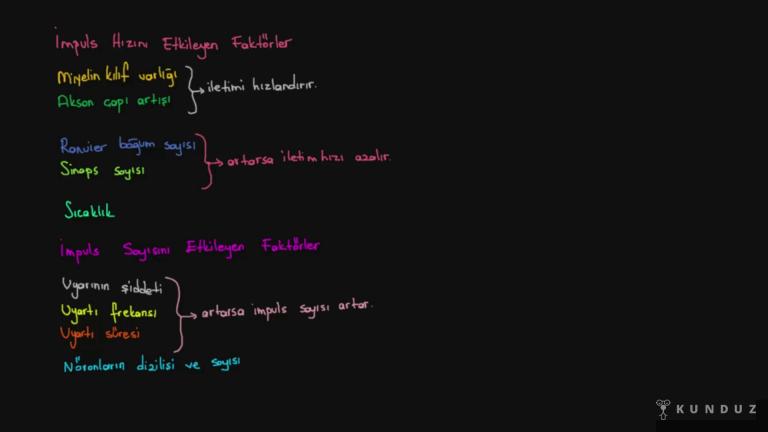 İmpuls Hızını Etkileyen Faktörler
Miyelin kılıf varlığı
Akson çapı artışı
iletimi hızlandırır.
Ranvier boğum sayısı
Sinaps sayısı
artarsa iletim hızı azalır.
Sıcaklık
İmpuls Sayısını Etkileyen Faktörler
Uyarının şiddeti
Uyartı frekansı
Uyartı süresi
artarsa impuls sayısı artar.
Nöronların dizilişi ve sayısı
KUNDUZ